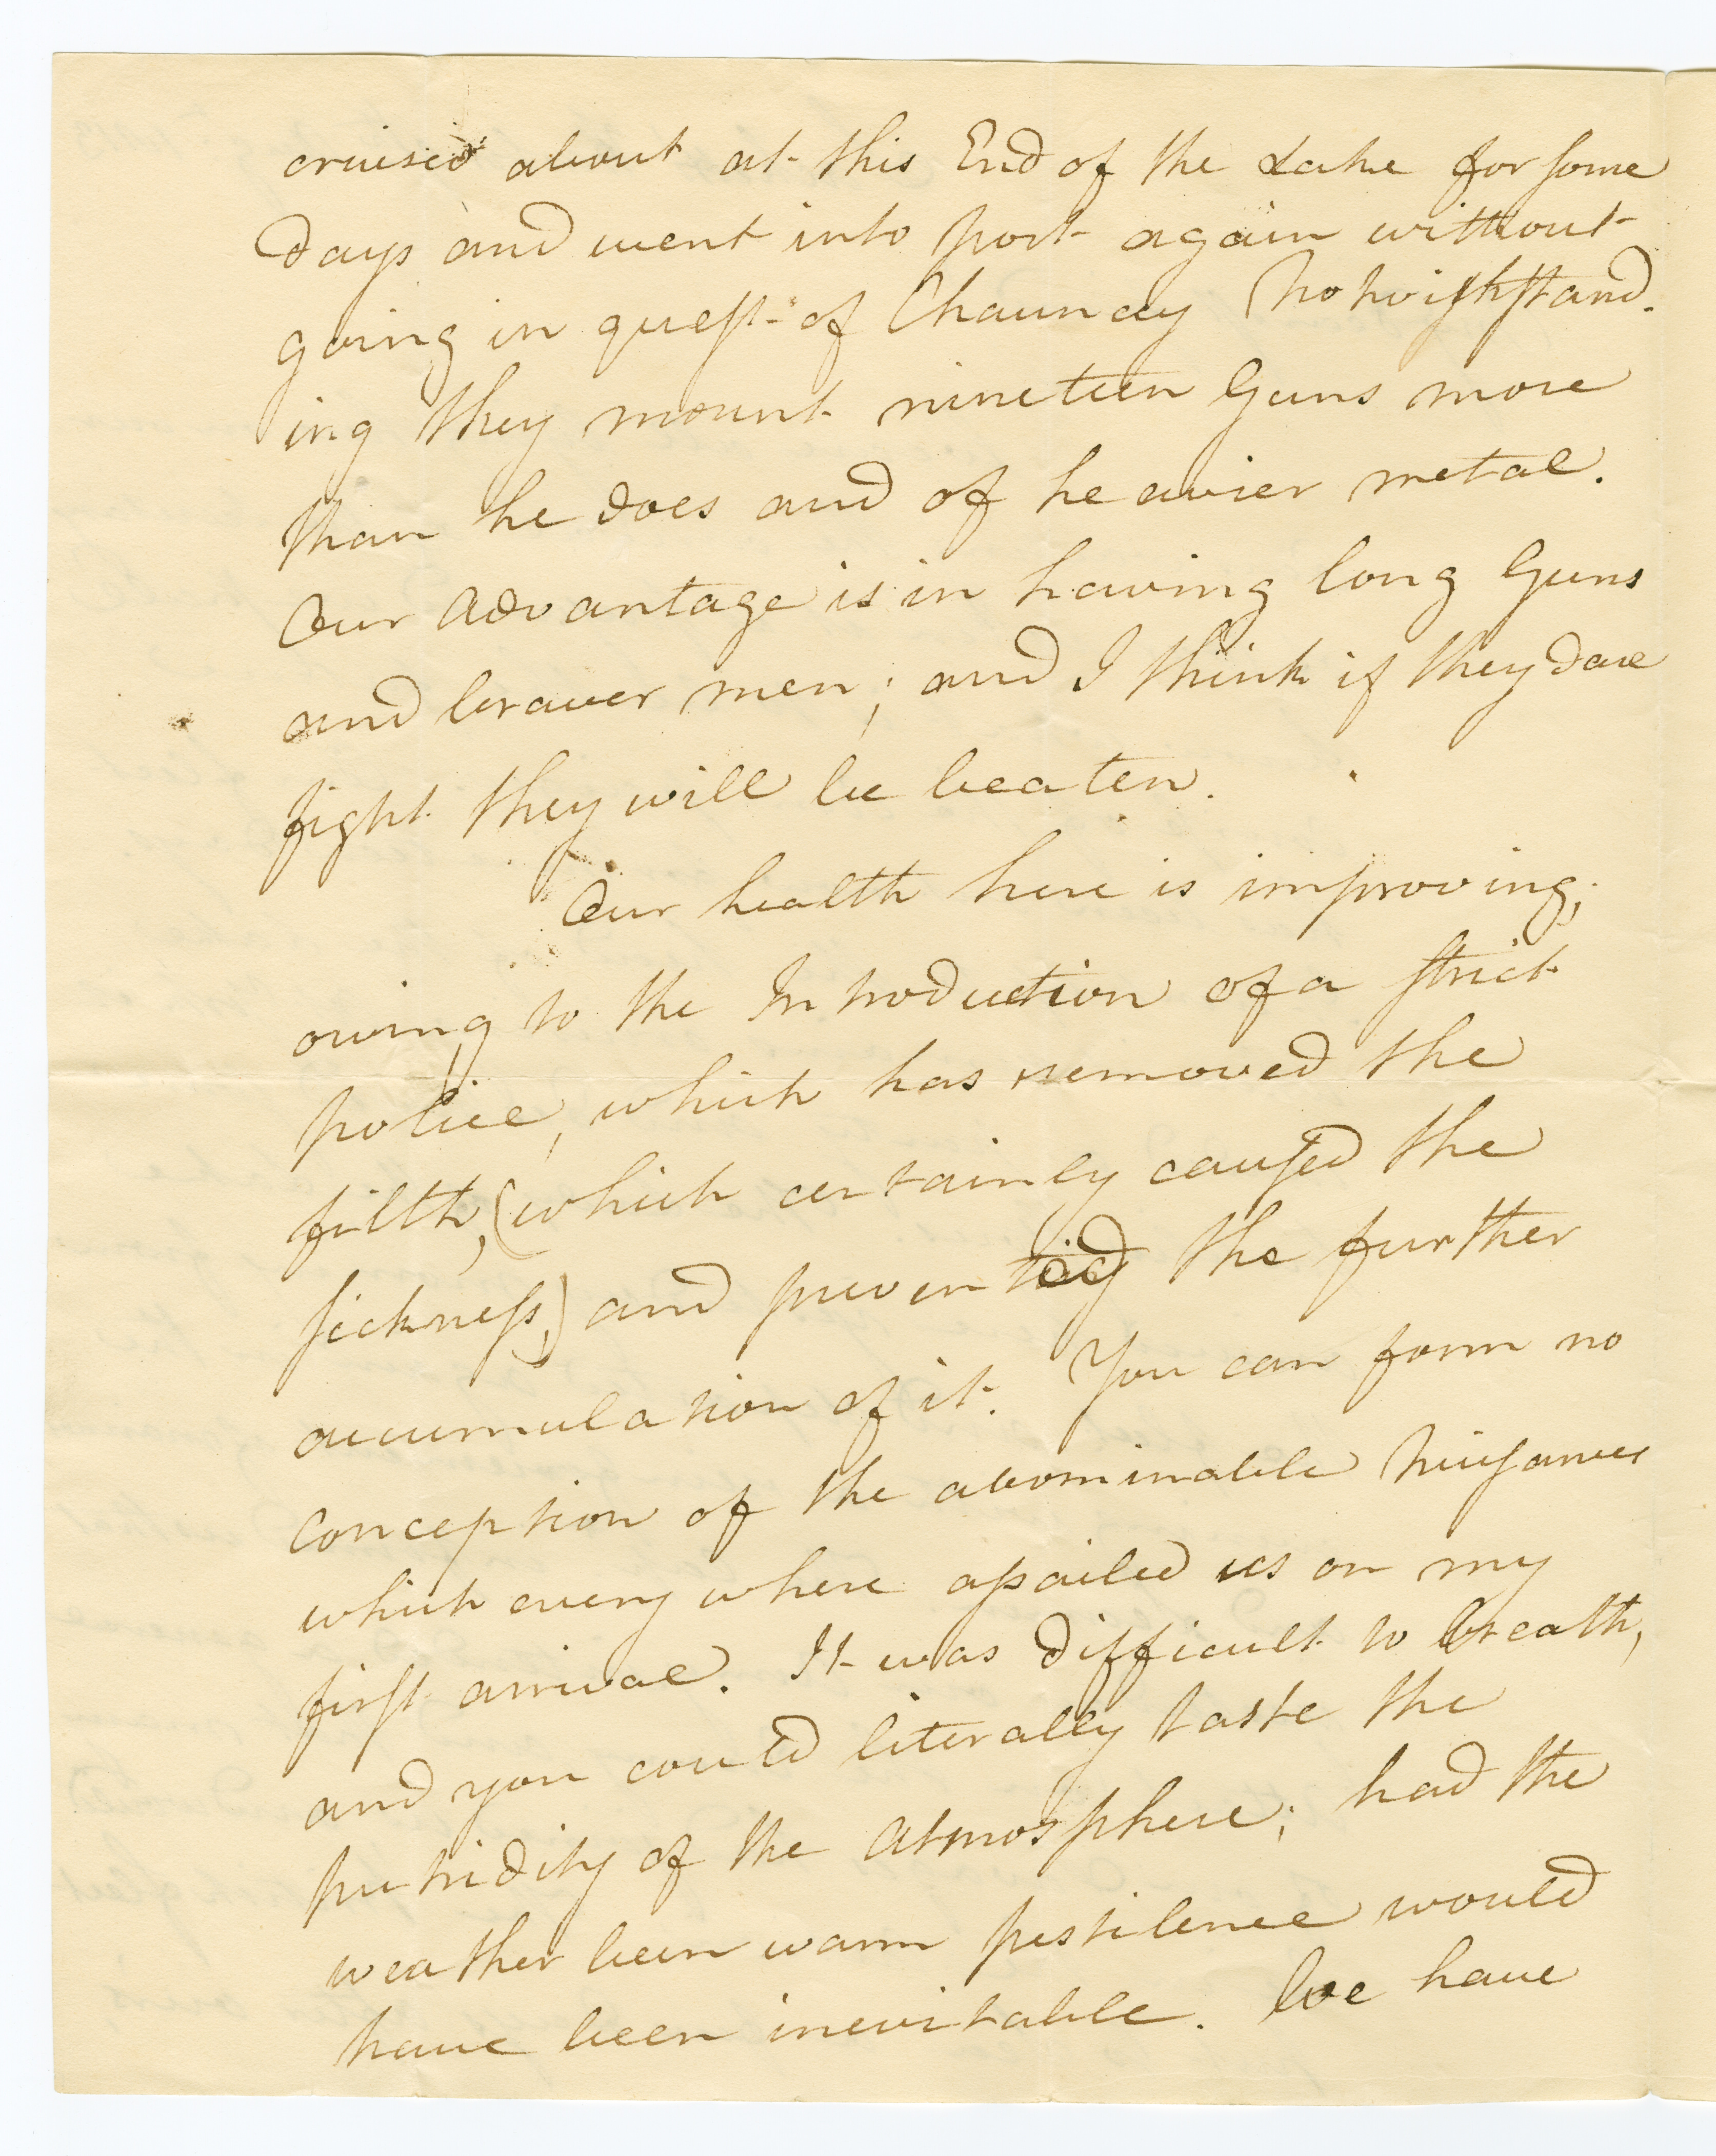 cruised about at this End of the Lake for some
days and went into port again without
going in quest of Chauncey Notwithstand-
ing they mount nineteen Guns more
than he does and of heavier metal.
Our advantage is in having long Guns
and braver men; and I think if they dare
fight they will be beaten.
Our health here is improving;
owing to the Introduction of a strict
police, which has removed the
filth, (which certainly caused the
sickness,) and prevented the further
accumulation of it. You can form no
conception of the abominable
which every where assailed us on my
first arrival. It was difficult to breath,
and you could literally taste the
putridity of the atmosphere; had the
weather been warm pestilence would
have been inevitable. We have